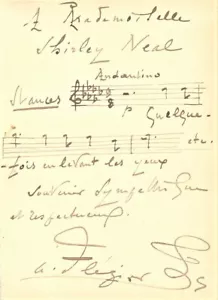 A Mademoiselle
Shirley Neal
Andantino
Stances
p Quelque-
etc.
-fois en levant les yeux
Souvenir Sympathique
et respectueux.
A. Flégier